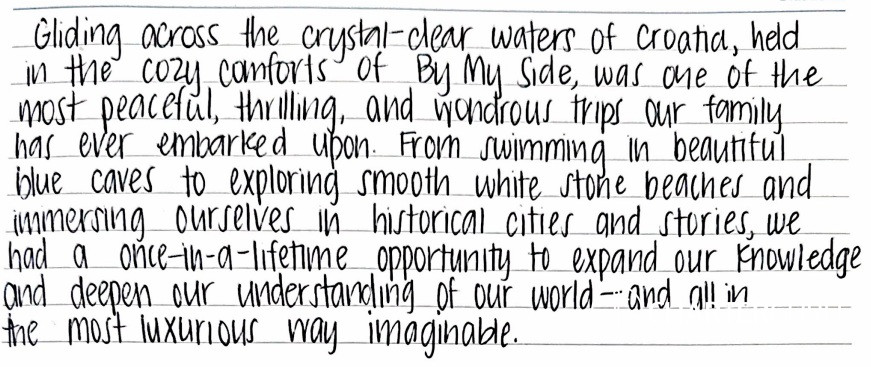 Gliding across the crystal-clear waters of Croatia, held
in the cozy comforts of By My Side, was one of the
most peaceful, thrilling, and wondrous trips our family
has ever embarked upon. From swimming in beautiful
blue caves to exploring smooth white stone beaches and
immersing ourselves in historical cities and stories, we
had a once-in-a-lifetime opportunity to expand our knowledge
and deepen our understanding of our world - and all in
the most luxurious way imaginable.